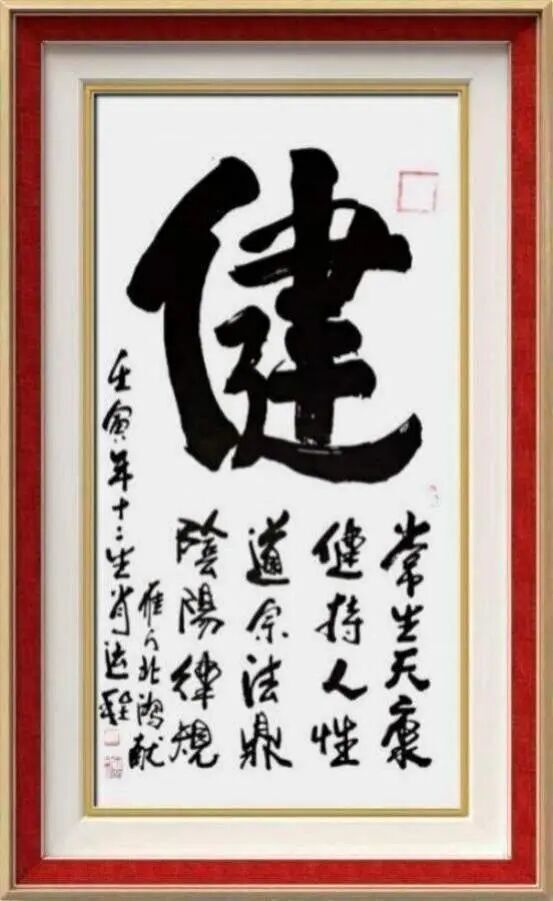 健
常生天稟
健持人性
道宗法鼎
陰陽律規
壬寅年十二生肖
雁 北鴻献